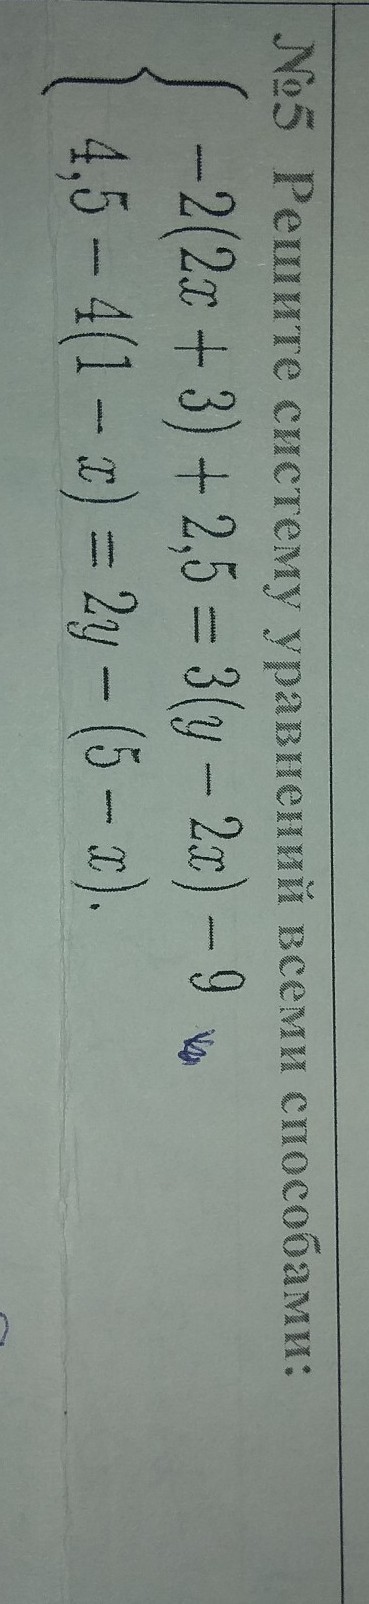 №5 Решите систему уравнений всеми способами:
−2(2x + 3) + 2,5 = 3(y − 2x) − 9
4,5 − 4(1 − x) = 2y − (5 − x).